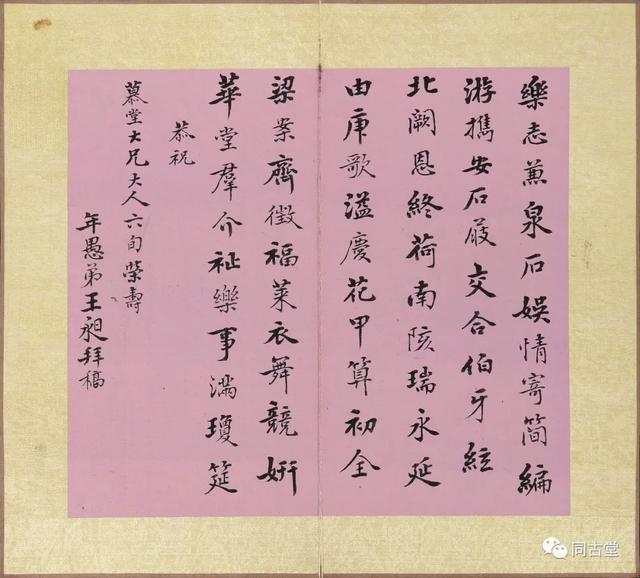 樂志蕭泉石娛情寄簡編
游攜安石屐交合伯牙絃
北闕恩終荷南陔瑞永延
由庚歌溢慶花甲算初全
梁案齊徵福萊衣舞競妍
華堂羣介祉樂事滿瓊筵
恭祝
慕堂大兄大人六旬榮壽
年愚弟王昶拜稿
同古堂